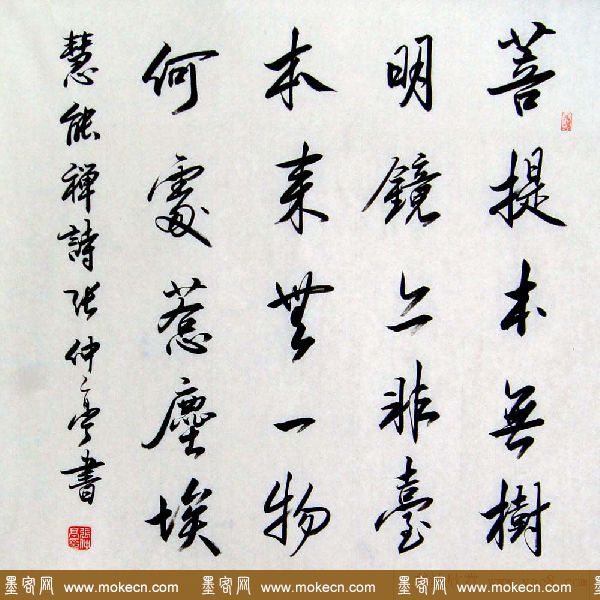 菩提本無樹
明鏡亦非臺
本来無一物
何處惹塵埃
慧能禪詩張仲亭書
墨客网 www.mokecn.com 墨客网 www.mokecn.com 墨客网 www.mokecn.com